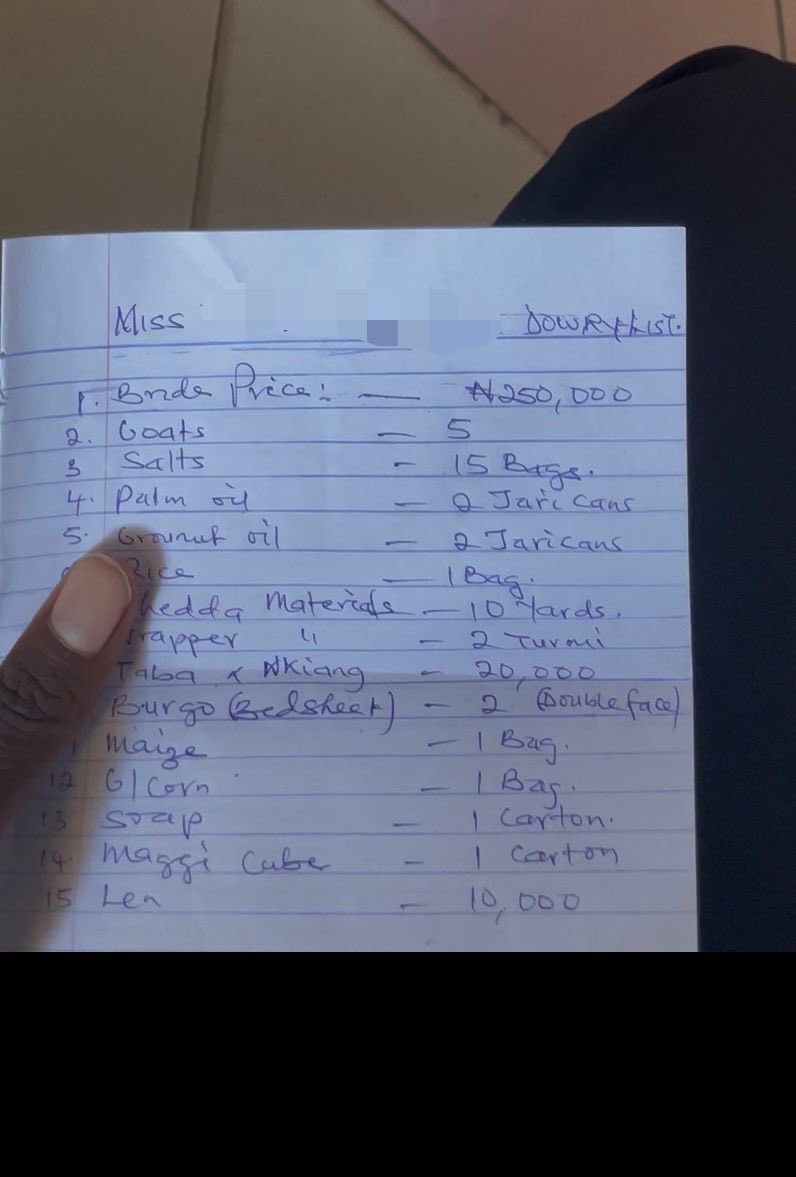 Miss DOWRY LIST.
1. Bride Price: — ₦250,000
2. Goats — 5
3 Salts — 15 Bags.
4. Palm oil — 2 Jari Cans
5. Grounut oil — 2 Jaricans
Rice — 1 Bag.
hedda Materials — 10 Yards.
rapper " — 2 Turmi
Taba & NKiang — 20,000
Burgo (Bedsheet) — 2 (Double face)
1 Maize — 1 Bag.
12 G/Corn — 1 Bag.
13 Soap — 1 Carton.
14. Maggi Cube — 1 Carton
15 Len — 10,000